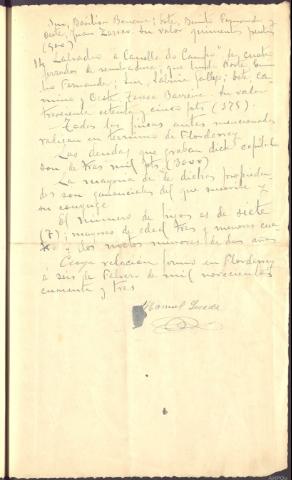 Sur, Benine; Este, Benito Raymundez y
Oeste, Juan Zarras. Su valor quinientas pesetas
(500)
14 Labradio "Capello do Campo" de cuatro
ferrados de sembradura; que linda Norte
Fernandez; Sur, gallego; Este, ca-
mino y Oeste Barreiro. Su valor
trescientas ochenta y cinco pts (375).
Todas las fincas antes mencionadas
radican en término de Flordorrey
Las deudas que gravan dicho capital
son de tres mil pts (3000)
La mayoria de de dichas propieda-
des son gananciales del que suscribe y
su conyuge
El número de hijos es de siete
(7); mayores de edad tres y menores cua-
tro y dos nietos menores de dos años
Cuya relacion firmo en Flordorrey
á seis de Febrero de mil novecientos
cuarenta y tres
Manuel